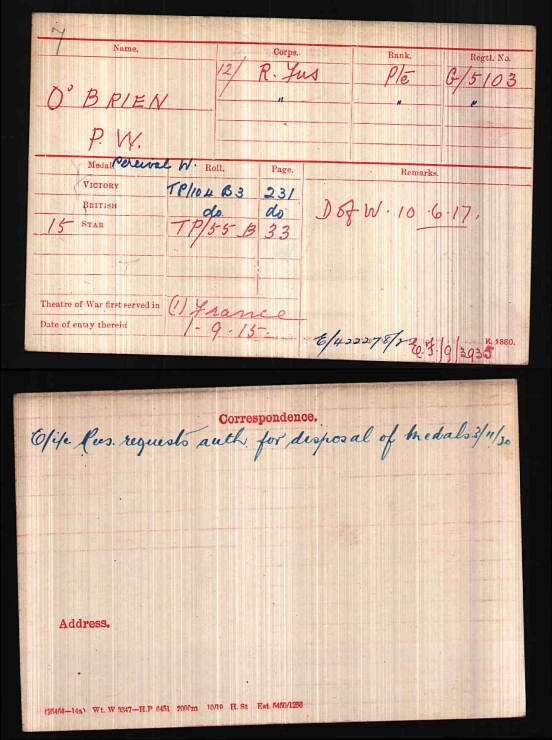 7
Name. Corps. Rank. Regtl. No.
12/ R. Fus Pte G/5103
O'BRIEN " " "
P. W.
Percival W.
Medal Roll. Page. Remarks.
VICTORY TP/104 B3 231
BRITISH do do D of W. 10.6.17.
15 STAR TP/55 B 33
Theatre of War first served in (1) France
Date of entry therein 1-9-15.
K. 1380.
Correspondence.
O/i/c Recs. requests auth. for disposal of medals 3/11/20
Address.
Wt. W 3347—H.P 6451 2000m 10/19 H. St